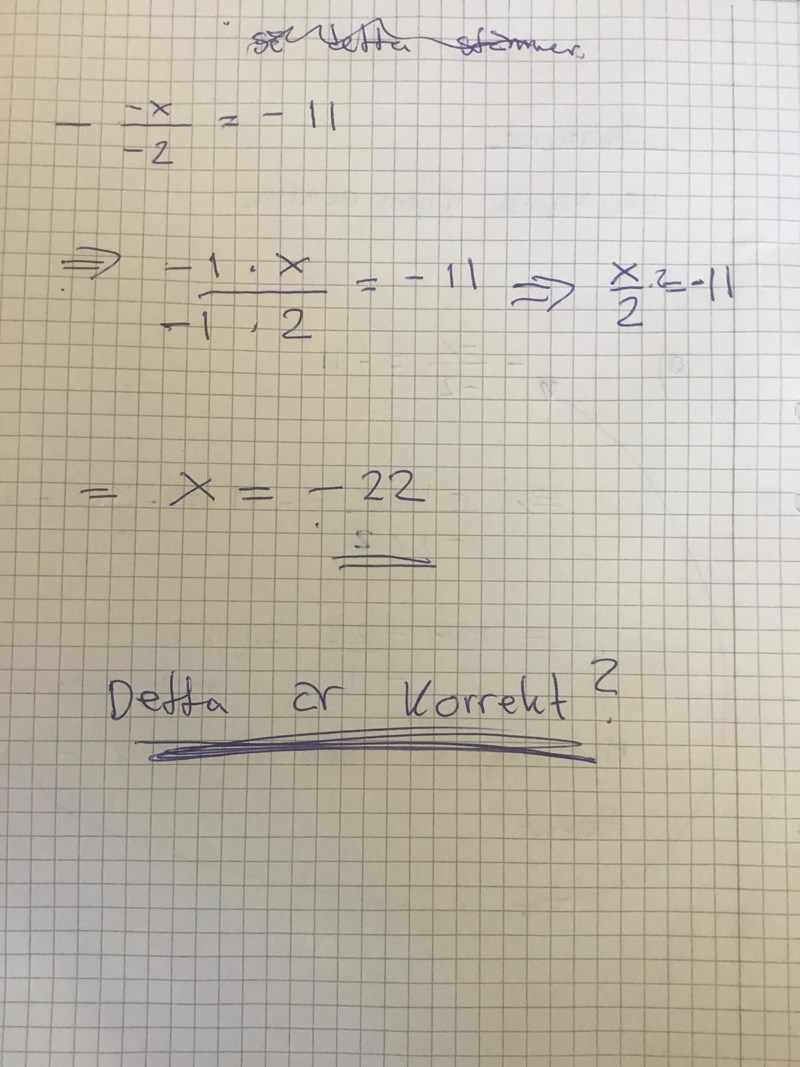 se detta stämmer.
- \frac{-x}{-2} = - 11
⇒ \frac{-1 · x}{-1 · 2} = - 11 ⇒ \frac{x}{2} · 2 = -11
= x = - 22
Detta är Korrekt?